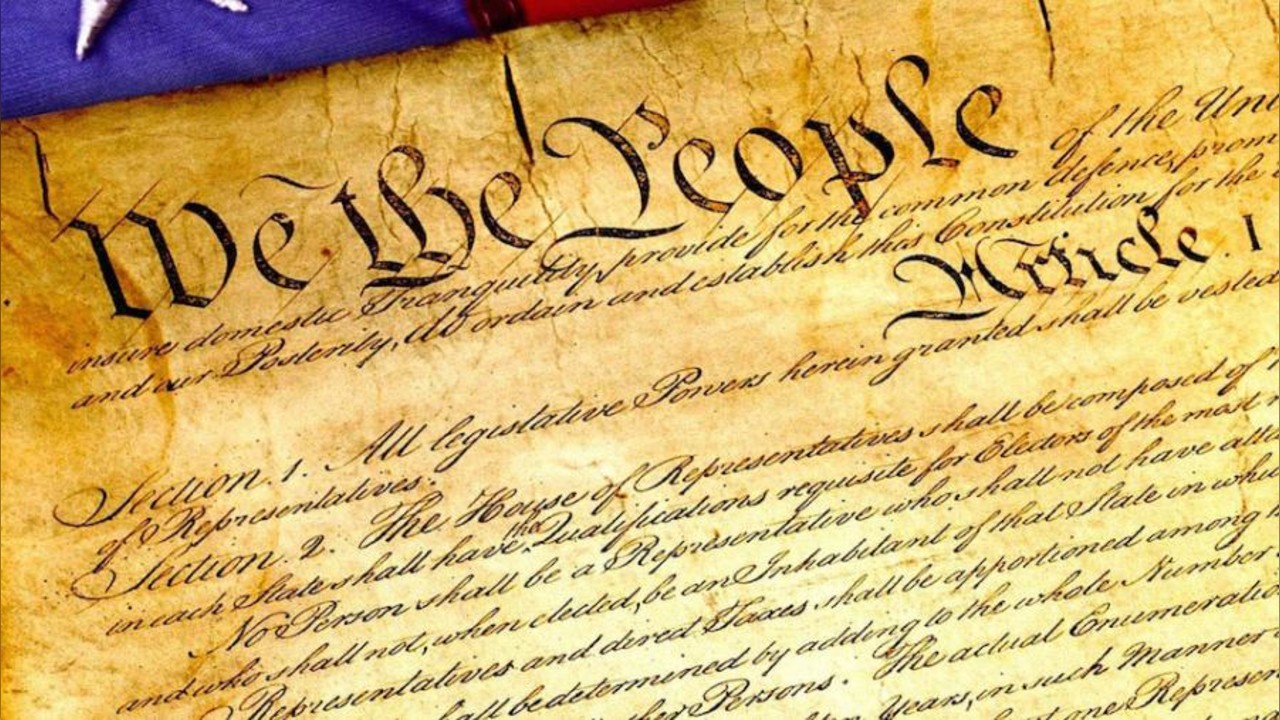 We the People
of the Uni
insure domestic Tranquility, provide for the common defence, prom
and our Posterity, do ordain and establish this Constitution for the
Article I
Section 1. All legislative Powers herein granted shall be vested
of Representatives.
Section 2. The House of Representatives shall be composed of
in each State shall have the Qualifications requisite for Electors of the most
No Person shall be a Representative who shall not have
and who shall not, when elected, be an Inhabitant of that State in
Representatives and direct Taxes shall be apportioned among
be determined by adding to the whole Number
Persons. The actual Enumeratio
Years, in such Manner
one Represen